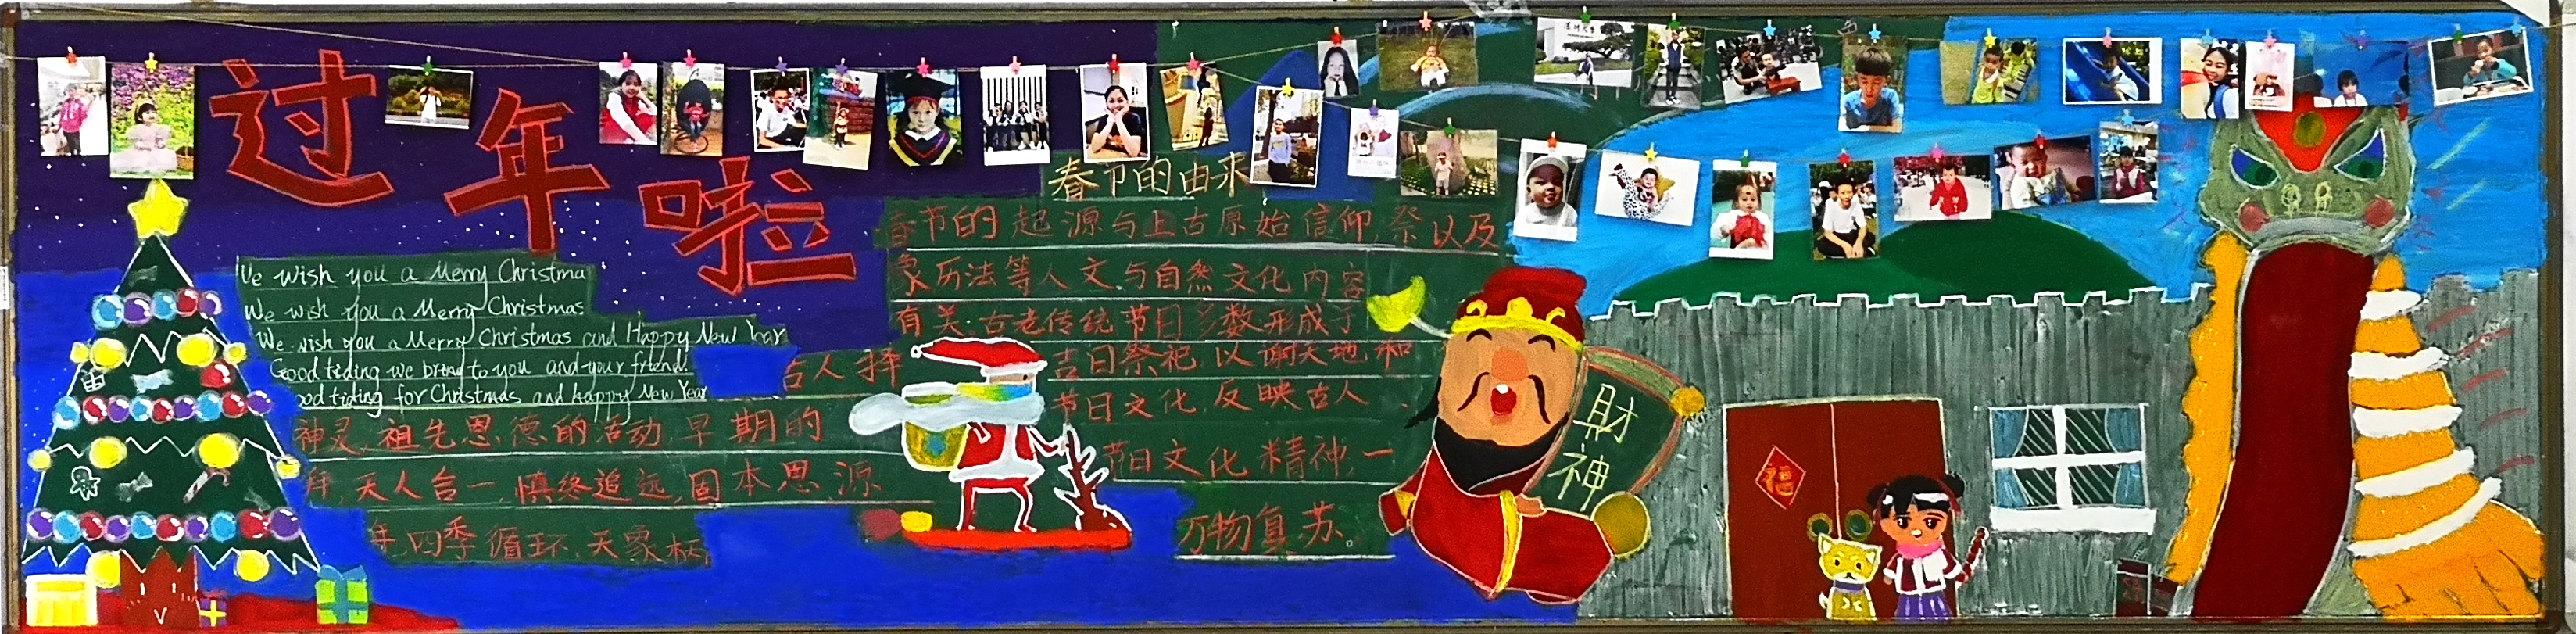 过年啦
We wish you a Merry Christma
We wish you a Merry Christmas
We wish you a Merry Christmas and Happy New Year
Good tiding we bring to you and your friend!
ood tiding for Christmas and happy New Year
春节的由来
春节的起源与上古原始信仰,祭以及
象历法等人文与自然文化内容
有关.古老传统节日多数形成于
古人择 吉日祭祀,以谢天地和
神灵,祖先恩德的活动,早期的 节日文化,反映古人
拜,天人合一,慎终追远,固本思源 节日文化精神,一
年,四季循环,天象柄 万物复苏。
財神
福